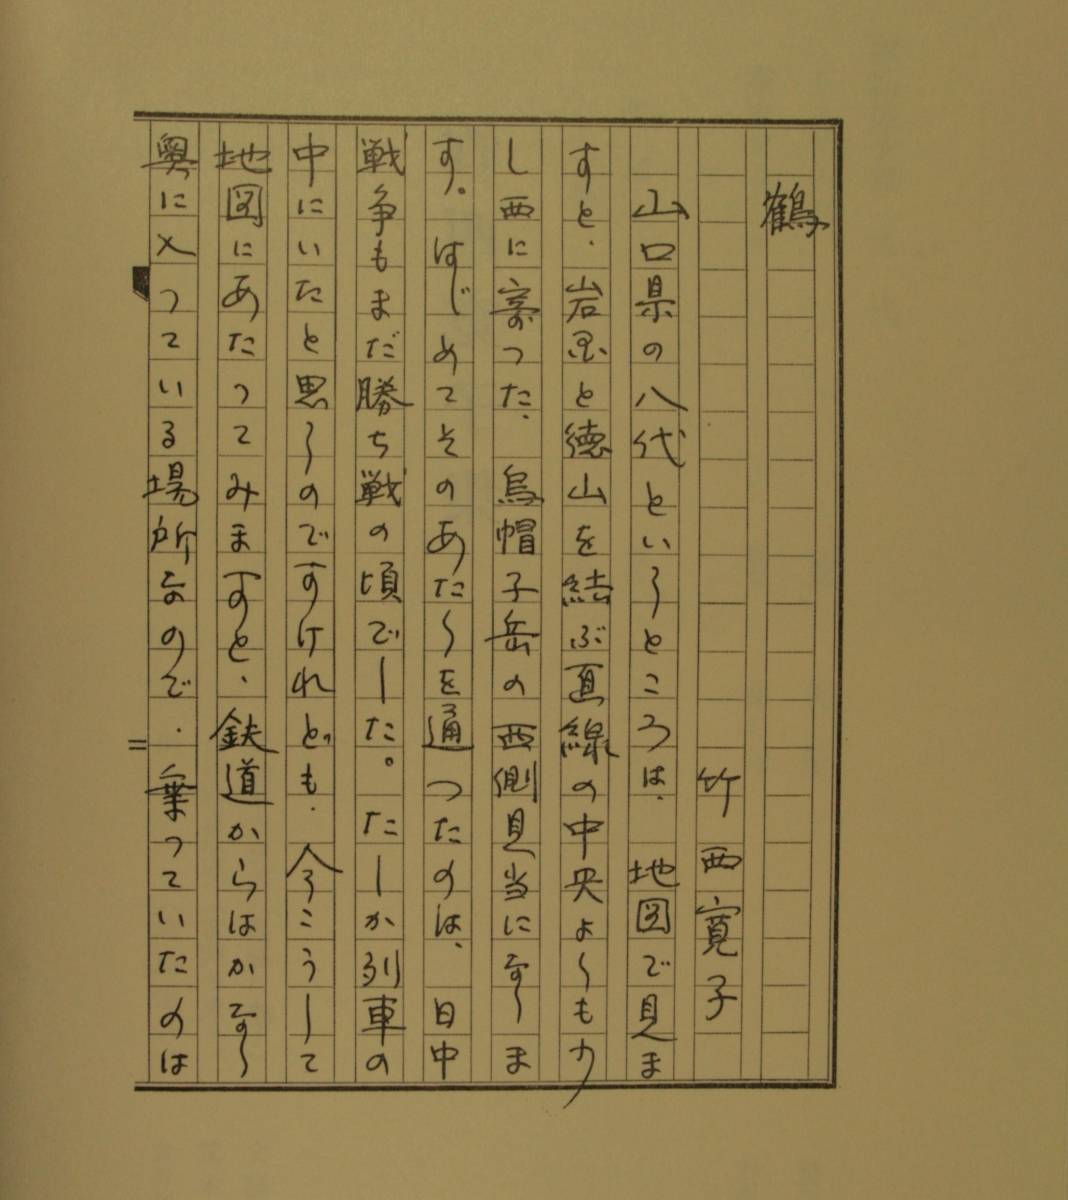 鶴
竹西寛子
山口県の八代というところは、地図で見ま
すと、岩国と徳山を結ぶ直線の中央よりも少
し西に寄った、烏帽子岳の西側見当になりま
す。はじめてそのあたりを通ったのは、日中
戦争もまだ勝ち戦の頃でした。たしか列車の
中にいたと思うのですけれども、今こうして
地図にあたってみますと、鉄道からはかなり
奥に入っている場所なので、乗っていたのは